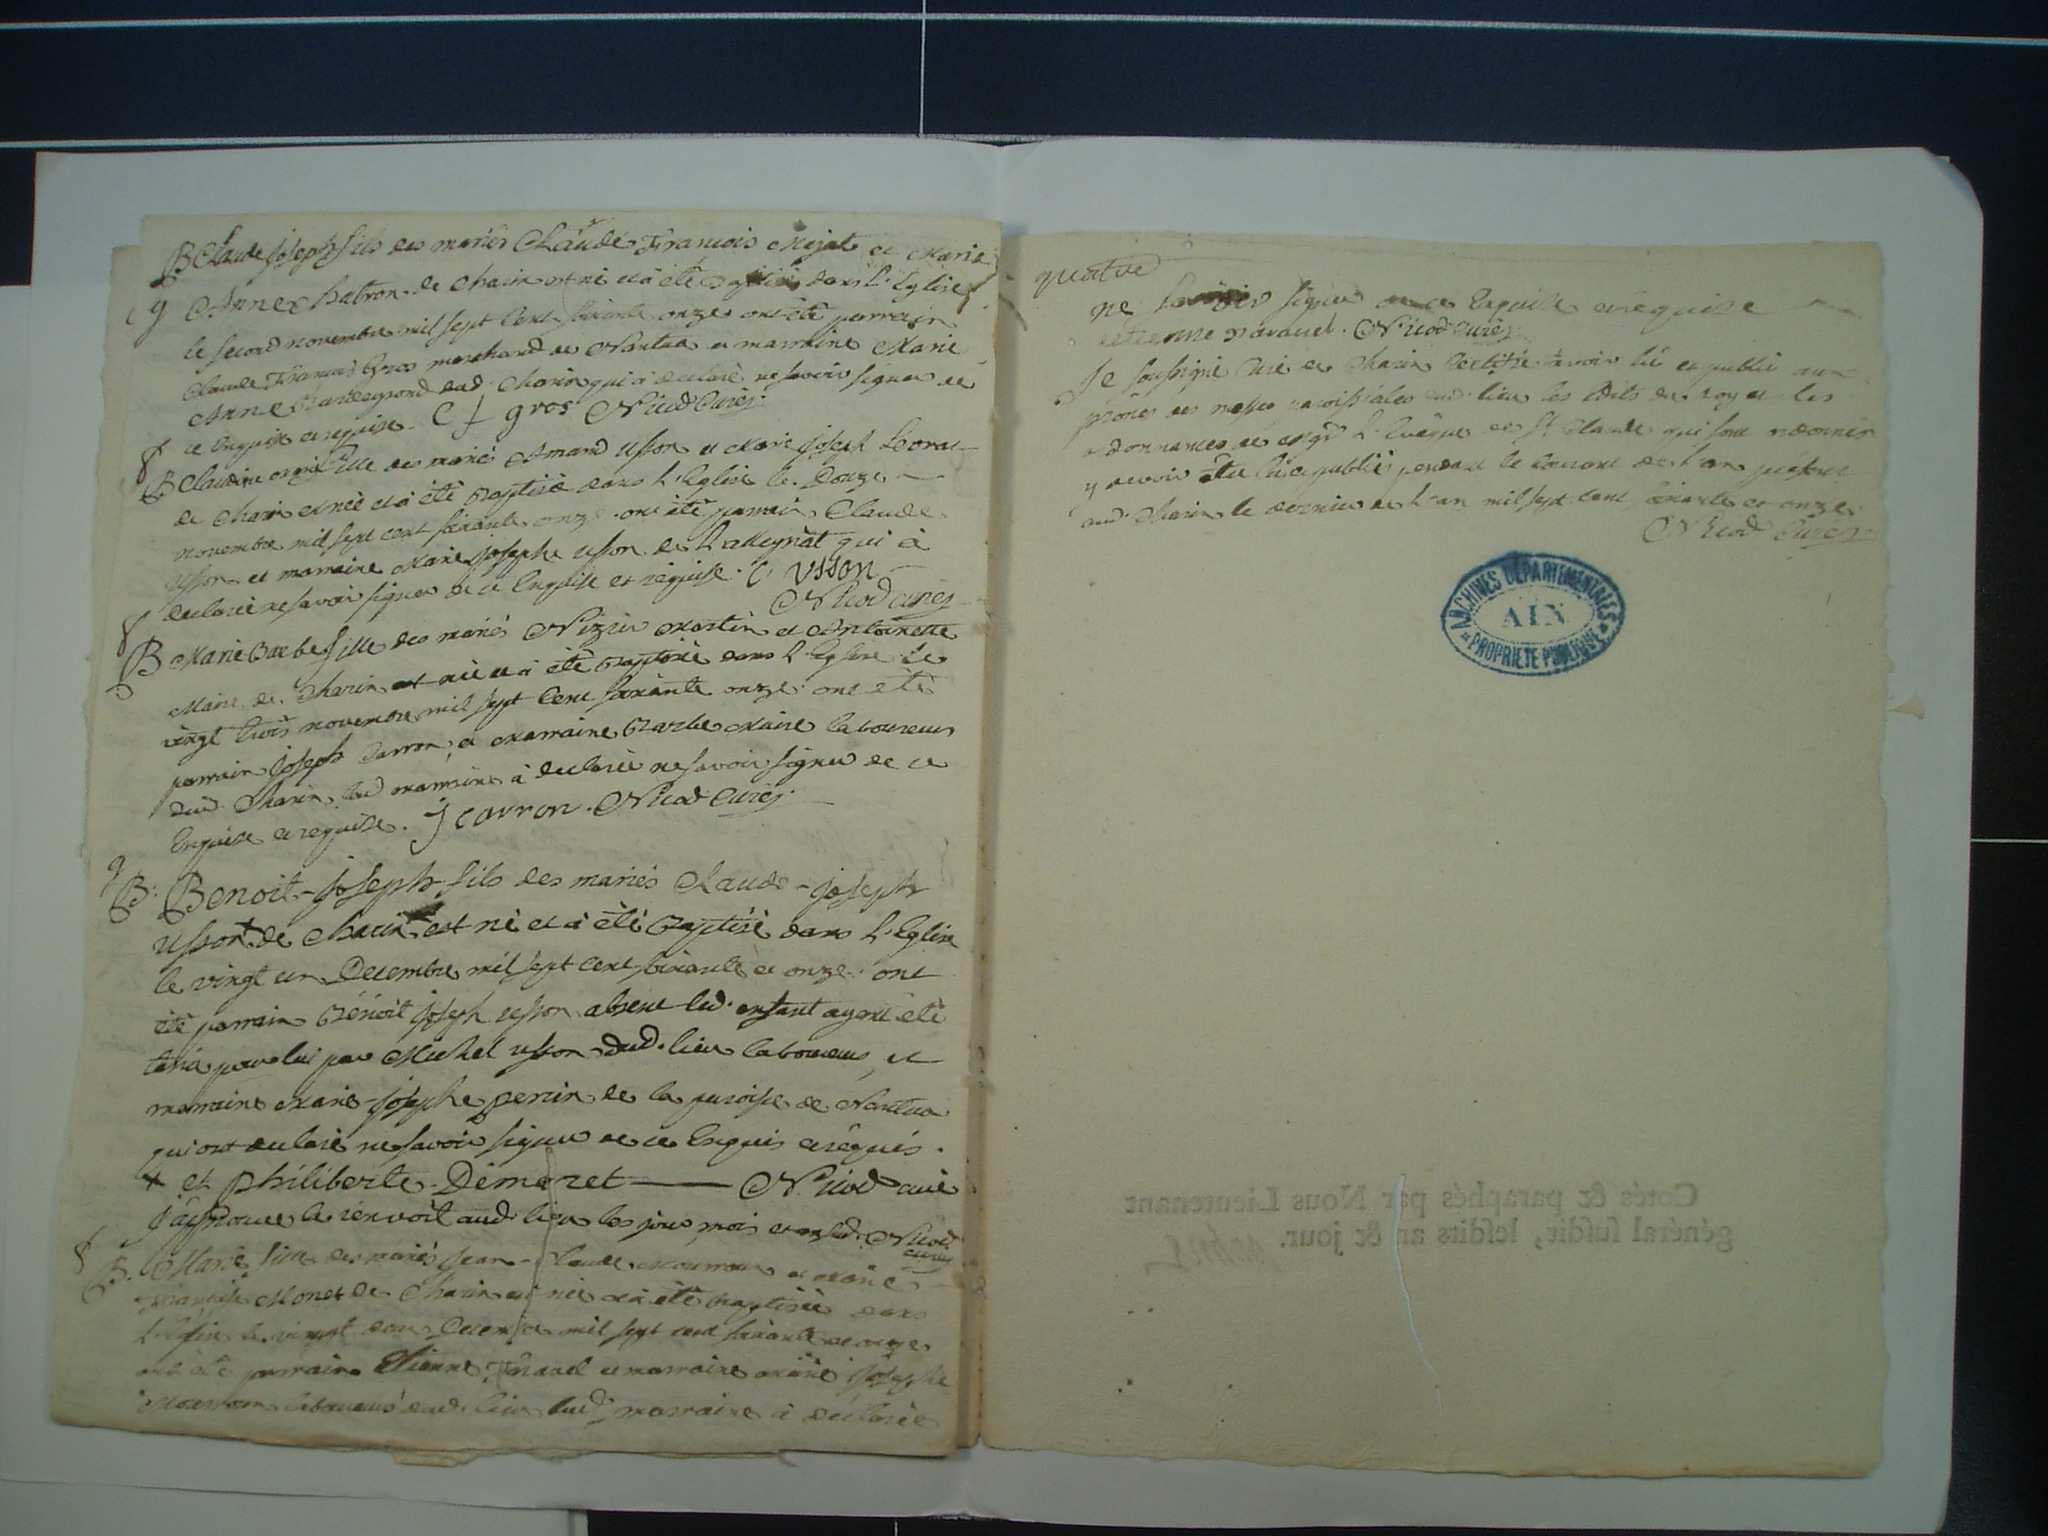 B Claude joseph fils des mariés Claude François Mejat et Marie
g Anne Chatron de Charix est né et a été Baptisé dans L'Eglise
le second novembre mil sept cent soixante onze ont été parrain
Claude François Gros marchand de Nantua et marraine Marie
Anne dud. Charix qui a declaré ne savoir signer de
ce Enquise et requise. C f gros Nicod Curé
f
B Claudine fille des mariés Amand Usson et Marie joseph
de Charix est née et a été Baptisé dans L'Eglise le Douze
novembre mil sept cent soixante onze ont été parrain Claude
Usson et marraine Marie josephe usson de Lalleyriat qui a
declaré ne savoir signer de ce Enquise et requise. C usson
Nicod curé
f
B Marie Barbe fille des mariés Nizier Martin et Antoinette
Maire de Charix est née et a été Baptisée dans L'Eglise le
vingt trois novembre mil sept cent soixante onze ont été
parrain Joseph Carron et Marraine Barbe Maire laboureurs
dud. Charix lad marraine a declaré ne savoir signer de ce
Enquise et requise. J carron. Nicod Curé
g
B. Benoit-joseph fils des mariés Claude-joseph
usson + de Charix est né et a été Baptisé dans L'Eglise
le vingt un Decembre mil sept cent soixante et onze ont
été parrain Bénoit joseph usson absent led. enfant ayant été
tenu pour lui par Michel usson dud. lieu laboureur, et
marraine Marie-josephe perrin de la paroisse de Nantua
qui ont declaré ne savoir signer de ce Enquis et requis.
+ et Philiberte Démozet Nicod curé
J'approuve le renvoit aud. lieu les jour, mois et an sud. Nicod
curé
f
B. Marie fille des mariés Jean-Claude et Marie
françoise Monet de Charix est née et a été baptisée dans
L'Eglise le vingt deux Decembre mil sept cent soixante et onze
ont été parrain Etienne et marraine Marie josephe
laboureurs dud. lieu lad. marraine a declaré
quatre
ne savoir signer de ce Enquise et requise
etienne Nicod curé
Je soussigné Curé de Charix Certifie avoir lû et publié aux
prônes des messes paroissiales dud. lieu les Edits du roy et les
ordonnances de Mgr L'Evêque de St Claude qui sont ordonnés
y devoir être lû et publié pendant le Courant de l'an présent
aud. Charix le dernier de l'an mil sept cent soixante et onze
Nicod Curé
ARCHIVES DÉPARTEMENTALES
AIN
PROPRIÉTÉ PUBLIQUE
Cotés & paraphés par Nous Lieutenant
général susdit, lesdits an & jour.